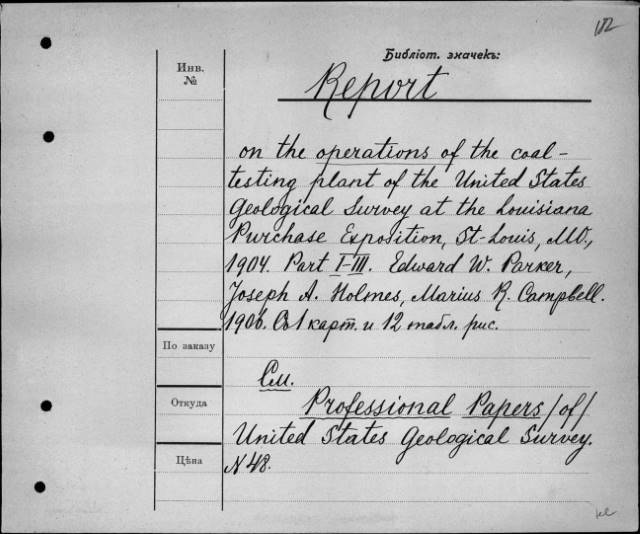 Библіот. значекъ:
Инв.
№
Report
on the operations of the coal-
testing plant of the United States
Geological Survey at the Louisiana
Purchase Exposition, St-Louis, MO.,
1904. Part I-III. Edward W. Parker,
Joseph A. Holmes, Marius R. Campbell.
1906. Съ 1 карт. и 12 табл. рис.
По заказу
См.
Откуда
Professional Papers /of/
United States Geological Survey.
Цѣна
N 48.